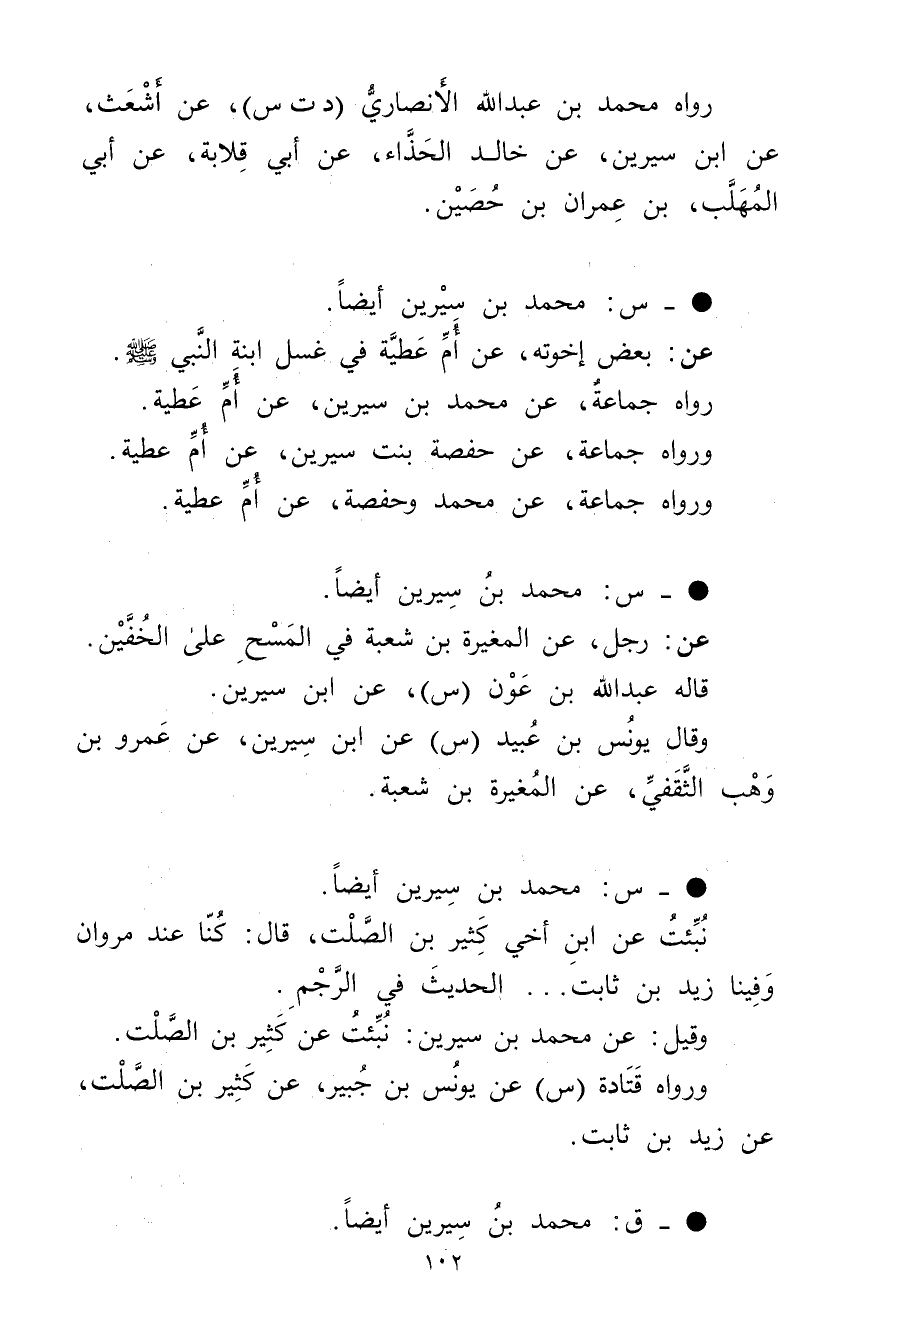 رواه محمد بن عبدالله الأَنصاريُّ (د ت س)، عن أَشْعَث،
عن ابن سيرين، عن خالد الحَذَّاء، عن أبي قِلابة، عن أبي
المُهَلَّب، بن عِمران بن حُصَيْن.
● ـ س: محمد بن سِيْرين أيضاً.
عن: بعض إخوته، عن أُمِّ عَطيَّة في غسل ابنةِ النَّبي ﷺ.
رواه جماعةٌ، عن محمد بن سيرين، عن أُمِّ عَطية.
ورواه جماعة، عن حفصة بنت سيرين، عن أُمِّ عطية.
ورواه جماعة، عن محمد وحفصة، عن أُمِّ عطية.
● ـ س: محمد بنُ سِيرين أيضاً.
عن: رجل، عن المغيرة بن شعبة في المَسْحِ على الخُفَّيْن.
قاله عبدالله بن عَوْن (س)، عن ابن سيرين.
وقال يونُس بن عُبيد (س) عن ابن سِيرين، عن عَمرو بن
وَهْب الثَّقَفيِّ، عن المُغيرة بن شعبة.
● ـ س: محمد بن سِيرين أيضاً.
نُبِّئتُ عن ابنِ أخي كَثير بن الصَّلْت، قال: كُنّا عند مروان
وَفِينا زيد بن ثابت... الحديثَ في الرَّجْمِ.
وقيل: عن محمد بن سيرين: نُبِّئتُ عن كَثِير بن الصَّلْت.
ورواه قَتَادة (س) عن يونُس بن جُبير، عن كَثِير بن الصَّلْت،
عن زيد بن ثابت.
● ـ ق: محمد بنُ سِيرين أيضاً.
١٠٢